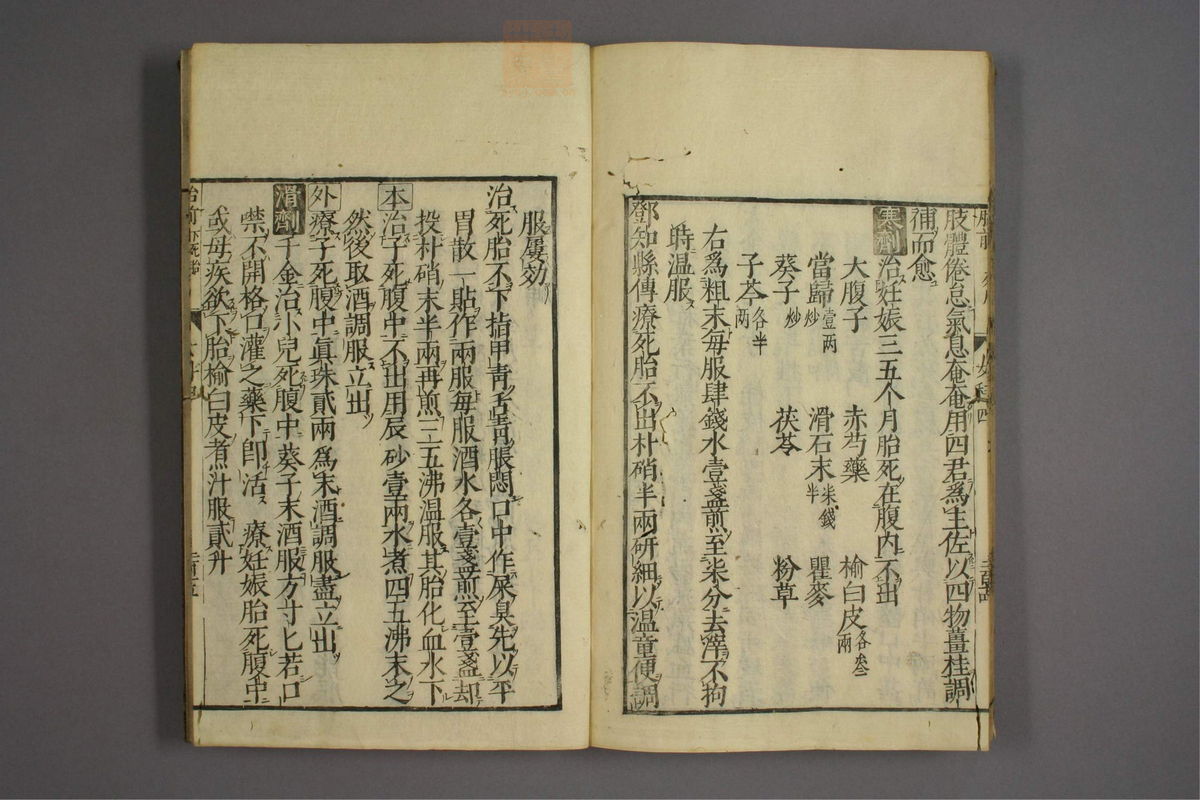 肢體倦怠氣息奄奄用四君為主佐以四物薑桂調
補而愈
寒劑 治妊娠三五个月胎死在腹內不出
大腹子 赤芍藥 榆白皮各叄兩
當歸壹兩炒 滑石末柒錢半 瞿麥
葵子炒 茯苓 粉草
子芩各半兩
右為粗末每服肆錢水壹盞煎至柒分去滓不拘
時温服
鄧知縣傳療死胎不出朴硝半兩研細以温童便調
服屢効
治死胎不下指甲青舌青脹悶口中作屎臭先以平
胃散一貼作兩服每服酒水各壹盞煎至壹盞却
投朴硝末半兩再煎三五沸温服其胎化血水下
本 治子死腹中不出用辰砂壹兩水煮四五沸末之
然後取酒調服立出
外 療子死腹中眞珠貳兩為末酒調服盡立出
滑劑 千金治小兒死腹中葵子末酒服方寸匕若口
噤不開格口灌之藥下即活 療妊娠胎死腹中
或母疾欲下胎榆白皮煮汁服貳升